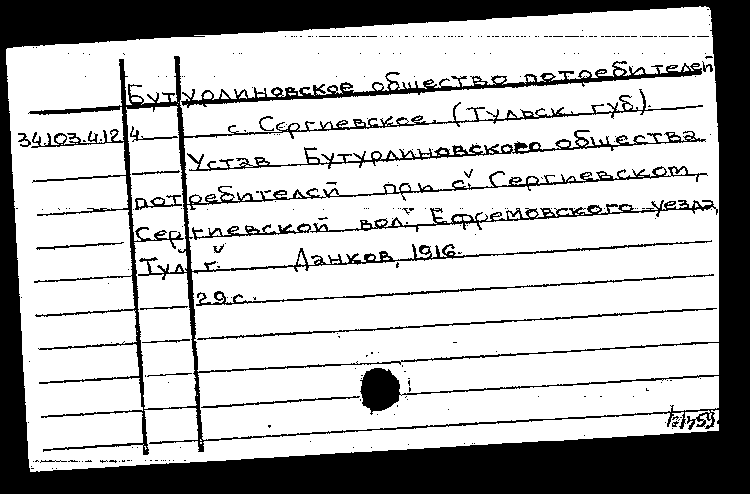 Бутурлиновское общество потребителей
34.103.4.12 4. с. Сергиевское. (Тульск. губ.).
Устав Бутурлиновского общества
потребителей при с. Сергиевском,
Сергиевской вол., Ефремовского уезда,
Тул. г. Данков, 1916.
29 с.